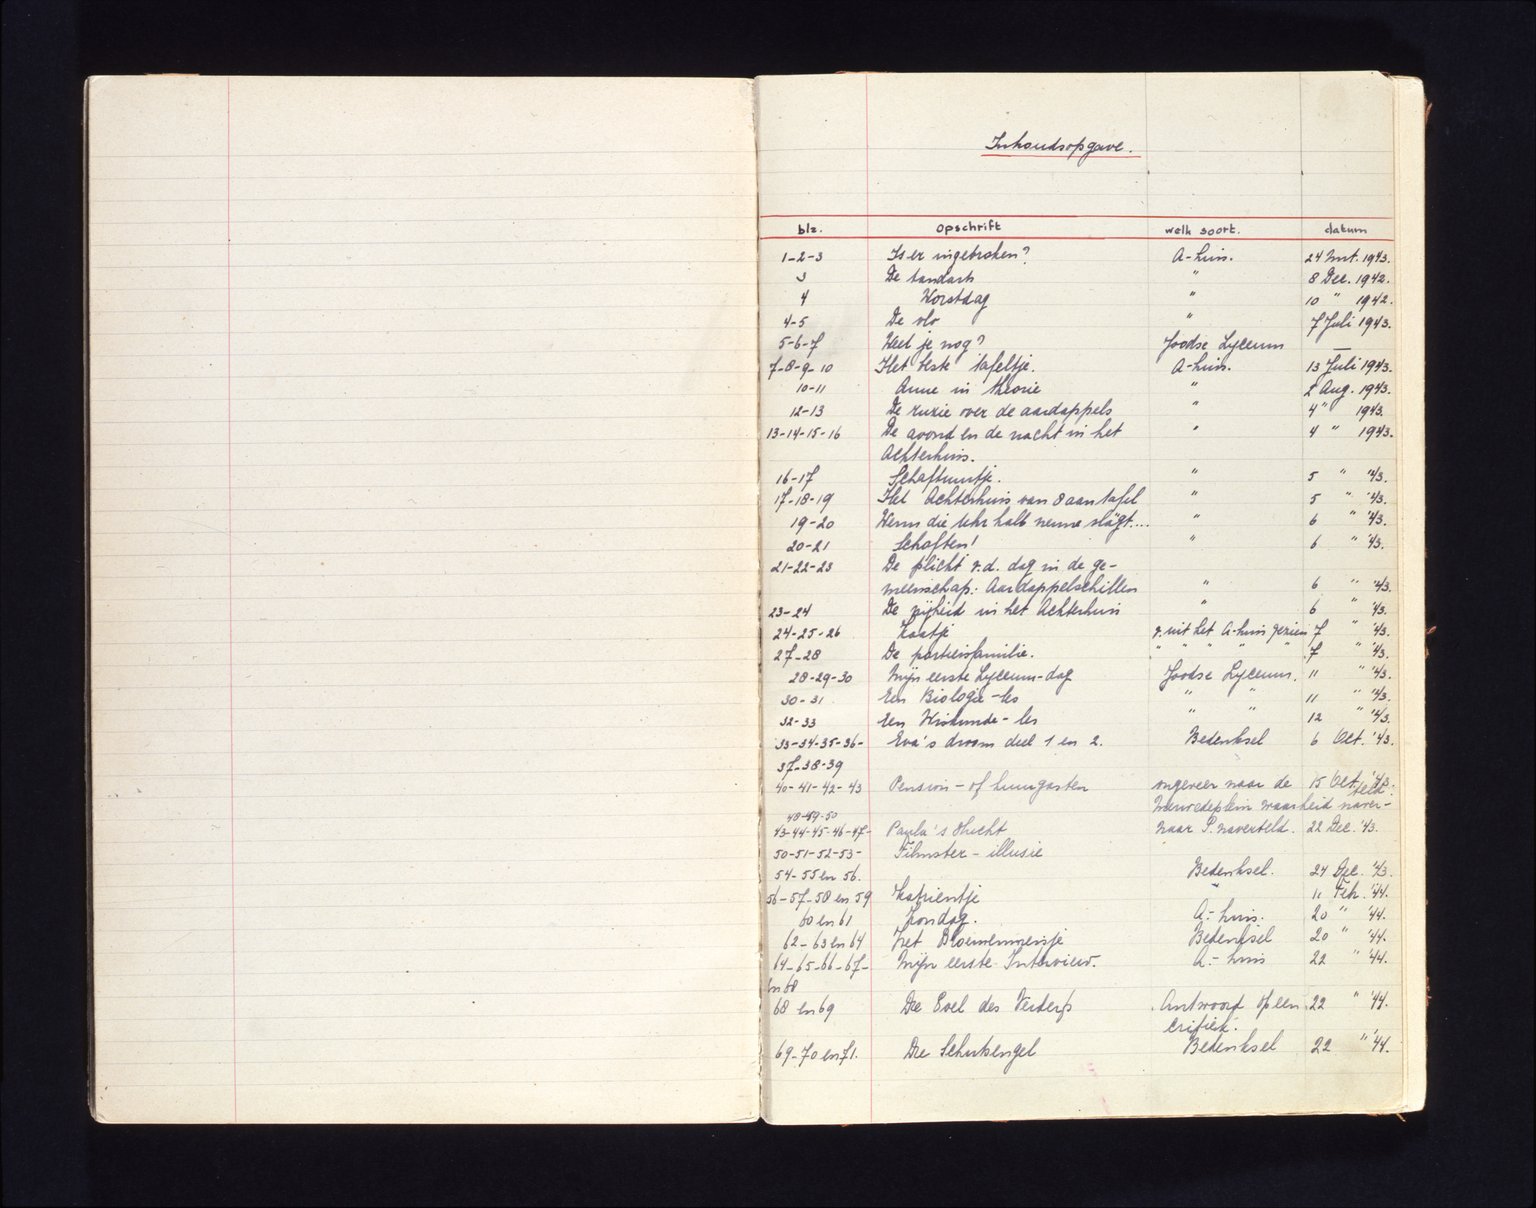 Inhoudsopgave.
blz. opschrift welk soort. datum
1-2-3 Is er ingebroken? A-huis. 24 Mrt. 1943.
3 De tandarts " 8 Dec. 1942.
4 Worstdag " 10 " 1942.
4-5 De vlo " 7 Juli 1943.
5-6-7 Weet je nog? Joodse Lyceum —
7-8-9-10 Het beste tafeltje. A-huis. 13 Juli 1943.
10-11 Anne in theorie " 2 Aug. 1943.
12-13 De ruzie over de aardappels " 4 " 1943.
13-14-15-16 De avond en de nacht in het " 4 " 1943.
Achterhuis.
16-17 Schaftuurtje. " 5 " '43.
17-18-19 Het Achterhuis van 8 aan tafel " 5 " '43.
19-20 Wenn die Uhr halb neune slägt.... " 6 " '43.
20-21 Schaften! " 6 " '43.
21-22-23 De plicht v.d. dag in de ge-
meenschap: Aardappelschillen " 6 " '43.
23-24 De vrijheid in het Achterhuis " 6 " '43.
24-25-26 Kaatje v. uit het A-huis gezien 7 " '43.
27-28 De portiersfamilie. " " " " " 7 " '43.
28-29-30 Mijn eerste Lyceum-dag Joodse Lyceum. 11 " '43.
30-31 Een Biologie-les " " 11 " '43.
32-33 Een Wiskunde-les " " 12 " '43.
33-34-35-36- Eva's droom deel 1 en 2. Bedenksel 6 Oct. '43.
37-38-39
40-41-42-43 Pension- of huurgasten ongeveer naar de 15 Oct. '43.
waarheid naver- teld.
48-49-50
43-44-45-46-47- Paula's vlucht naar P. naverteld. 22 Dec. '43.
50-51-52-53- Filmster-illusie
54-55 en 56. Bedenksel. 24 Dec. '43.
56-57-58 en 59 Katrientje " 11 Feb. '44.
60 en 61 Zondag. A.-huis. 20 " '44.
62-63 en 64 Het Bloemenmeisje Bedenksel 20 " '44.
64-65-66-67- Mijn eerste Interview. A.-huis 22 " '44.
en 68
68 en 69 Den Boel des Verderfs Antwoord op een 22 " '44.
critiek.
69-70 en 71. De Schutsengel Bedenksel 22 " '44.